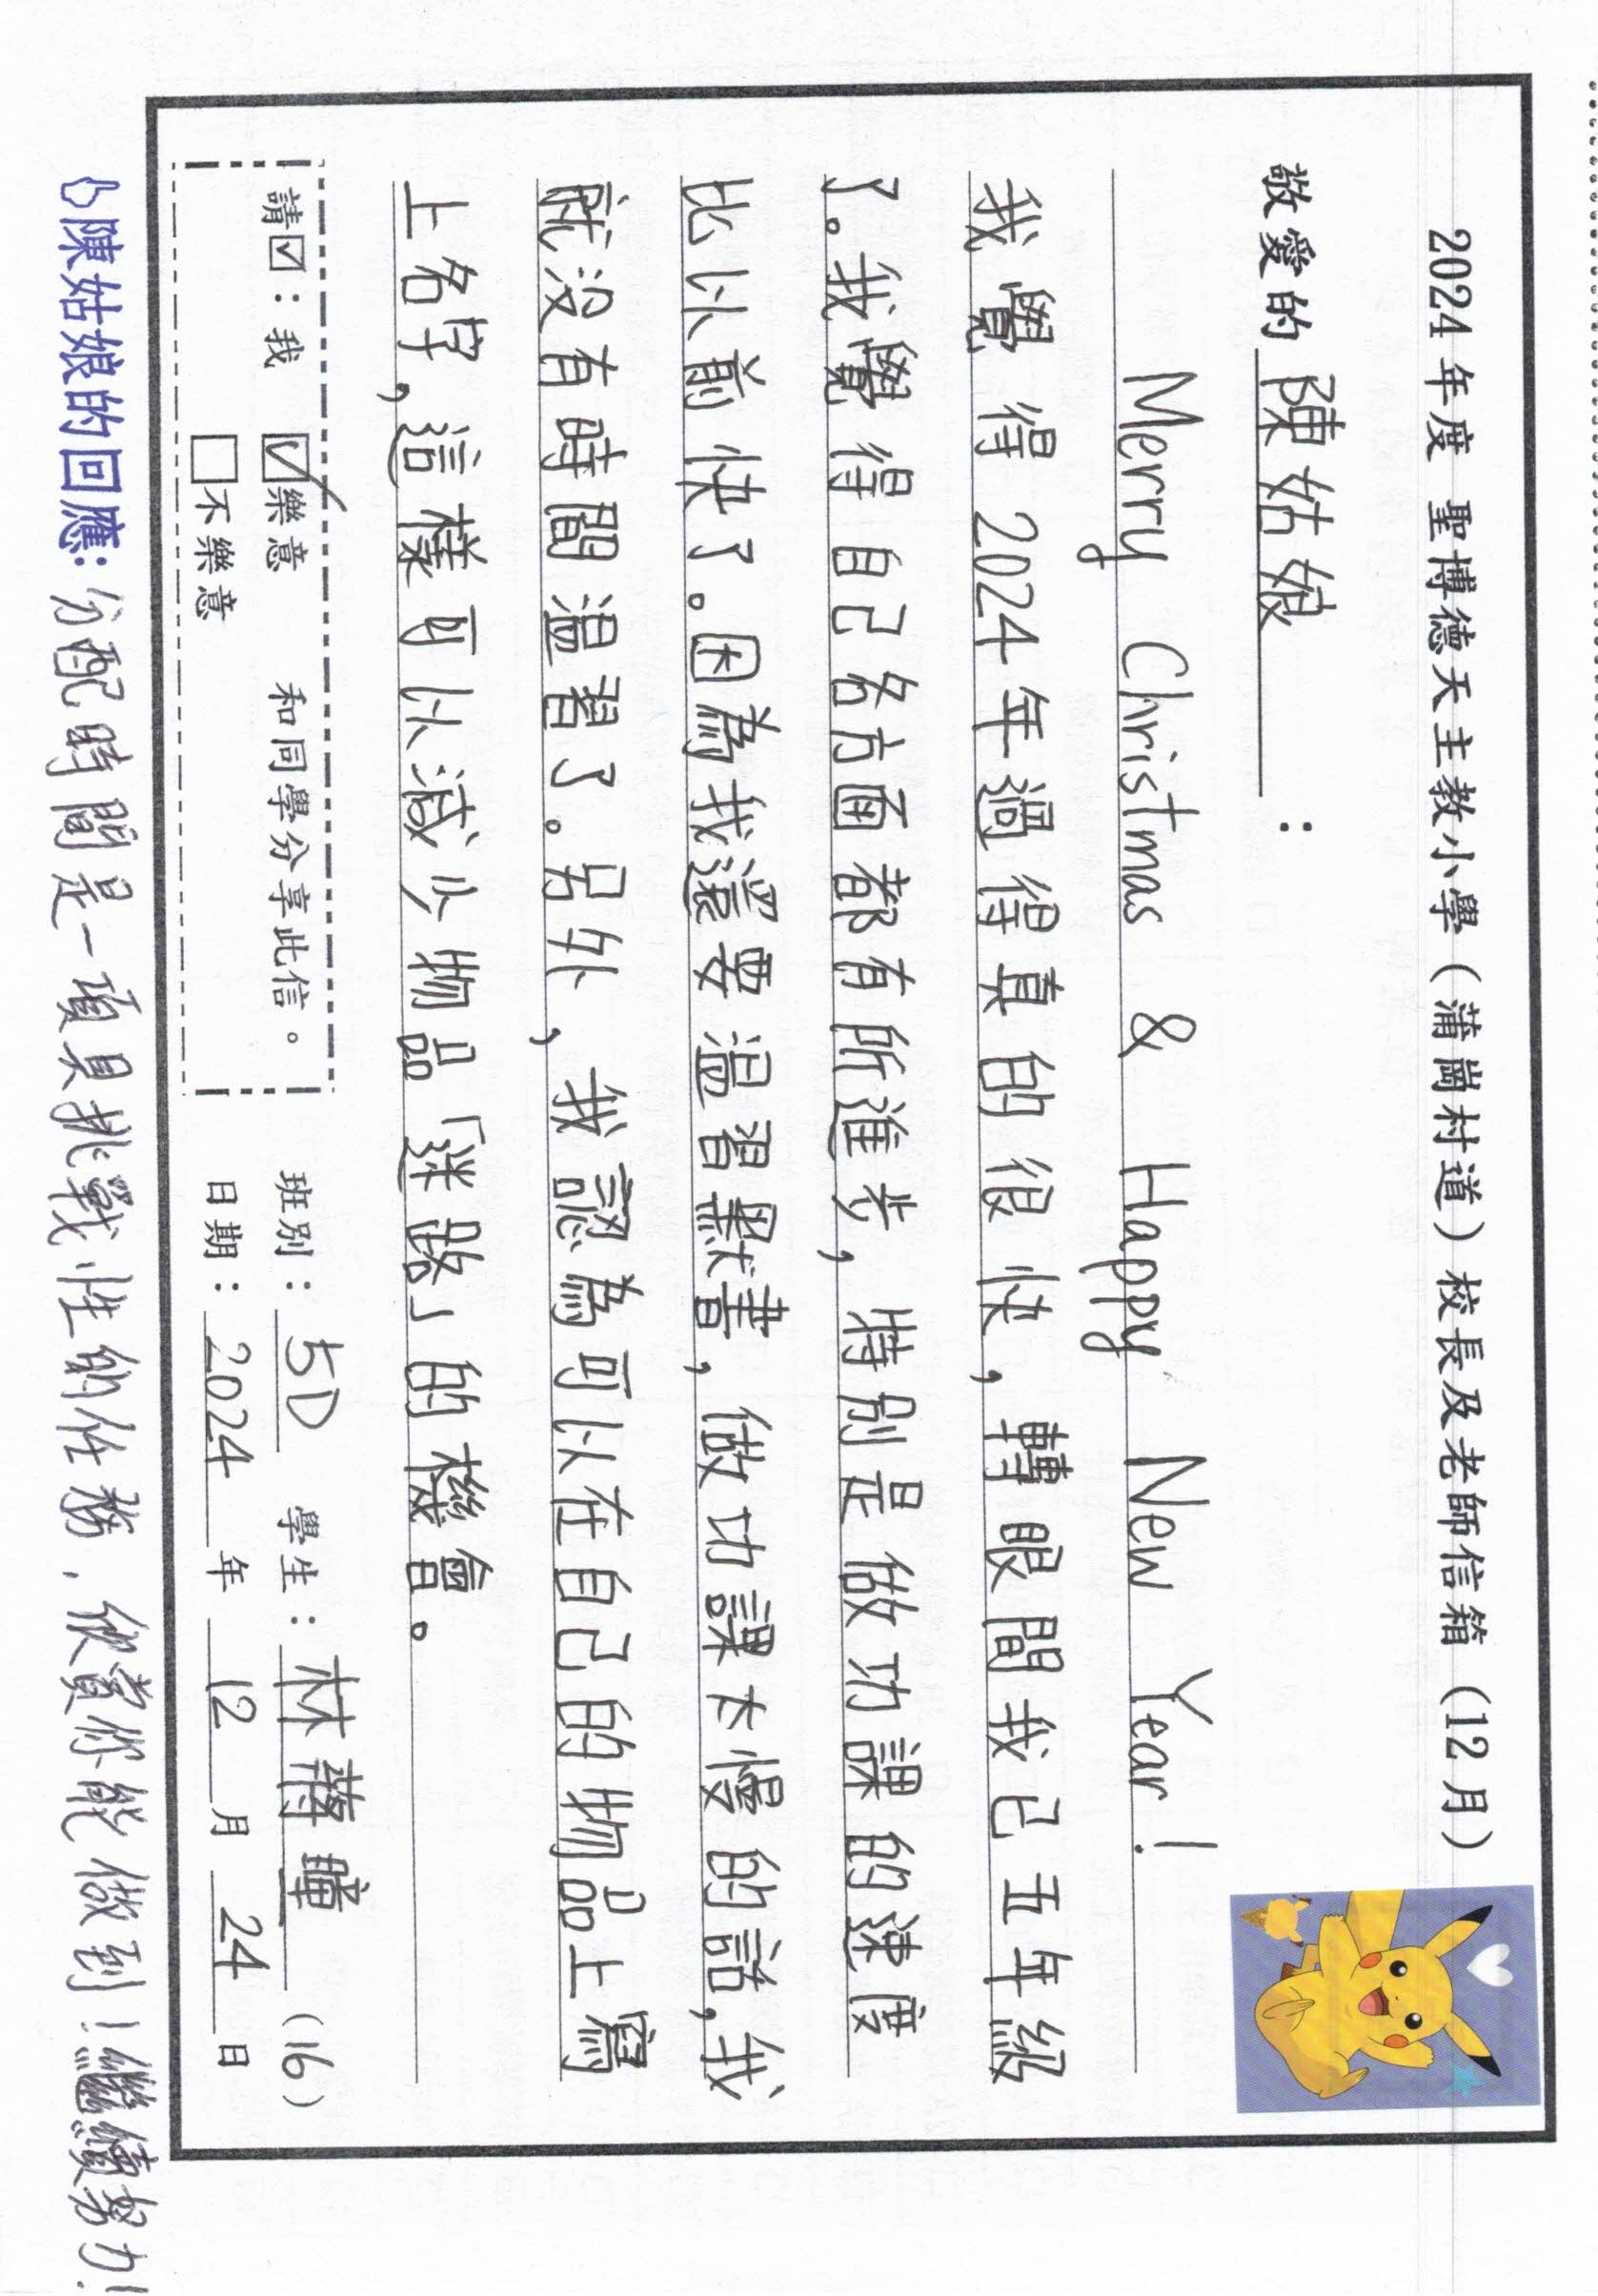 2024 年度 聖博德天主教小學（蒲崗村道）校長及老師信箱（12 月）
敬愛的 陳姑娘 ：
Merry Christmas & Happy New Year!
我覺得2024年過得真的很快，轉眼間我已五年級
了。我覺得自己各方面都有所進步，特別是做功課的速度
比以前快了。因為我還要溫習默書，做功課太慢的話，我
就没有時間溫習了。另外，我認為可以在自己的物品上寫
上名字，這樣可以減少物品「迷路」的機會。
請☑：我 ☑樂意 和同學分享此信。
□不樂意
班別：5D 學生：林蒨 (16)
日期：2024 年 12 月 24 日
陳姑娘的回應：分配時間是一項具挑戰性的任務，欣賞你能做到！繼續努力！